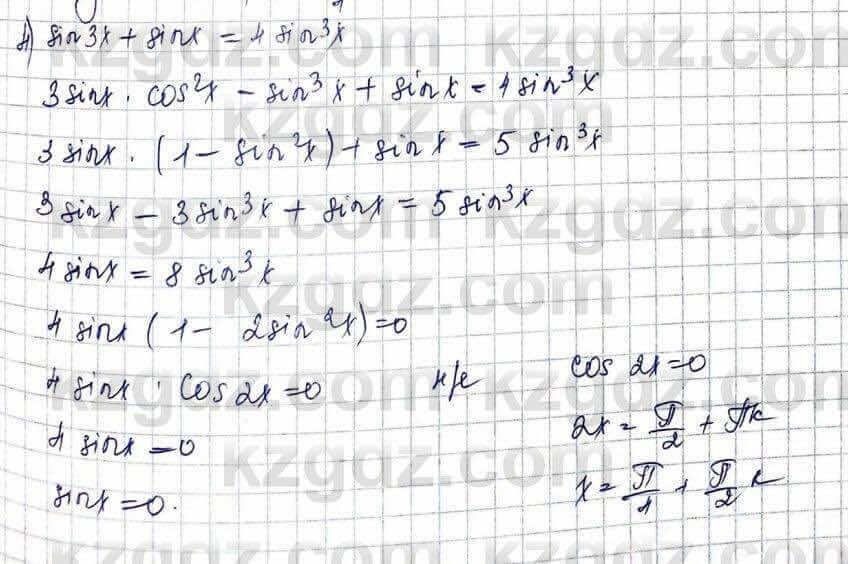 4) sin3x + sinx = 4 sin³x
3 sinx · cos²x - sin³x + sinx = 4 sin³x
3 sinx · (1 - sin²x) + sinx = 5 sin³x
3 sinx - 3 sin³x + sinx = 5 sin³x
4 sinx = 8 sin³x
4 sinx (1 - 2sin²x) = 0
4 sinx · cos 2x = 0
4 sinx = 0
sinx = 0.
cos 2x = 0
2x = π/2 + πk
x = π/4 + π/2 k
kzgdz.com